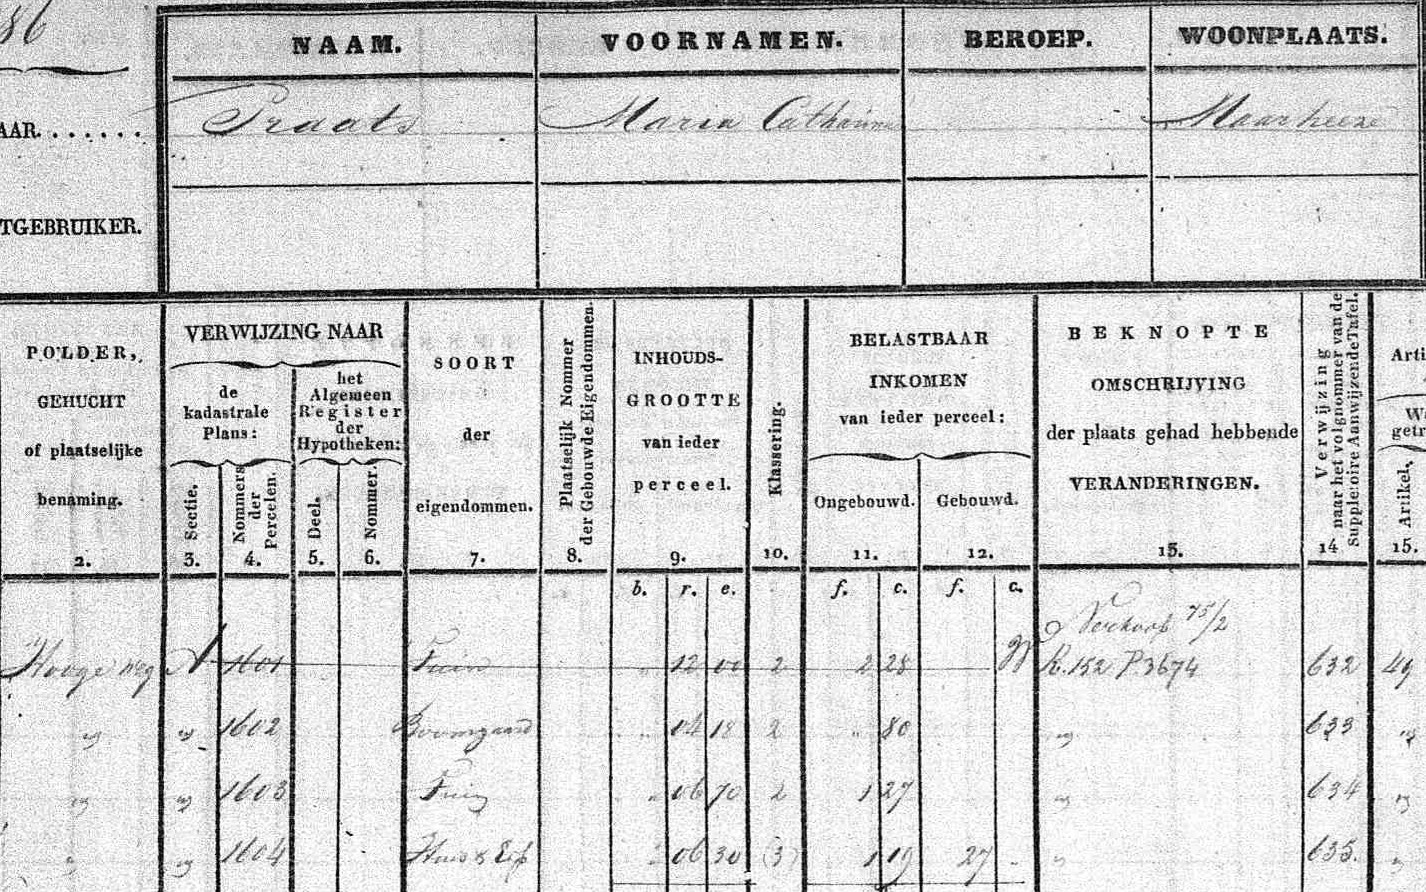 86
NAAM. VOORNAMEN. BEROEP. WOONPLAATS.
AAR. . . . . . . Praats Maria Catharina Maarheeze
TGEBRUIKER.
POLDER, GEHUCHT of plaatselijke benaming. 2.
VERWIJZING NAAR
de kadastrale Plans:
Sectie. 3.
Nommers der Percelen. 4.
het Algemeen Register der Hypotheken:
Deel. 5.
Nommer. 6.
SOORT der eigendommen. 7.
Plaatselijk Nommer der Gebouwde Eigendommen. 8.
INHOUDS-GROOTTE van ieder perceel. 9.
Klassering. 10.
BELASTBAAR INKOMEN van ieder perceel:
Ongebouwd. 11.
Gebouwd. 12.
BEKNOPTE OMSCHRIJVING der plaats gehad hebbende VERANDERINGEN. 13.
Verwijzing naar het volgnommer van de Suppletoire Aanwijzende Tafel. 14
Arti
Wa
getr
Artikel. 15.
b. r. e. f. c. f. c.
Verkoop 75/2
Hooge weg A 1601 Tuin 12 00 2 2 28 R.152 P.3674 632 49
" " 1602 Boomgaard " 04 18 2 " 80 " 633 "
" " 1603 Tuin " 06 70 2 1 27 " 634 "
" " 1604 Huis & Erf " 06 30 (3) 1 19 27 - " 635. "